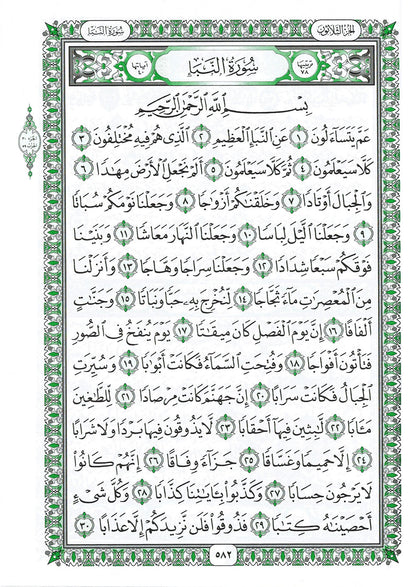 الجزء الثلاثون
سورة النبأ
ترتيبها ٧٨
سُورَةُ النَّبَإِ
آياتها ٤٠
بِسْمِ اللَّهِ الرَّحْمَٰنِ الرَّحِيمِ
عَمَّ يَتَسَاءَلُونَ ١ عَنِ النَّبَإِ الْعَظِيمِ ٢ الَّذِي هُمْ فِيهِ مُخْتَلِفُونَ ٣
كَلَّا سَيَعْلَمُونَ ٤ ثُمَّ كَلَّا سَيَعْلَمُونَ ٥ أَلَمْ نَجْعَلِ الْأَرْضَ مِهَٰدًا ٦
وَالْجِبَالَ أَوْتَادًا ٧ وَخَلَقْنَٰكُمْ أَزْوَٰجًا ٨ وَجَعَلْنَا نَوْمَكُمْ سُبَاتًا
٩ وَجَعَلْنَا الَّيْلَ لِبَاسًا ١٠ وَجَعَلْنَا النَّهَارَ مَعَاشًا ١١ وَبَنَيْنَا
فَوْقَكُمْ سَبْعًا شِدَادًا ١٢ وَجَعَلْنَا سِرَاجًا وَهَّاجًا ١٣ وَأَنزَلْنَا
مِنَ الْمُعْصِرَٰتِ مَاءً ثَجَّاجًا ١٤ لِّنُخْرِجَ بِهِ حَبًّا وَنَبَاتًا ١٥ وَجَنَّٰتٍ
أَلْفَافًا ١٦ إِنَّ يَوْمَ الْفَصْلِ كَانَ مِيقَٰتًا ١٧ يَوْمَ يُنفَخُ فِي الصُّورِ
فَتَأْتُونَ أَفْوَاجًا ١٨ وَفُتِحَتِ السَّمَاءُ فَكَانَتْ أَبْوَٰبًا ١٩ وَسُيِّرَتِ
الْجِبَالُ فَكَانَتْ سَرَابًا ٢٠ إِنَّ جَهَنَّمَ كَانَتْ مِرْصَادًا ٢١ لِّلطَّٰغِينَ
مَـَٔابًا ٢٢ لَّٰبِثِينَ فِيهَا أَحْقَابًا ٢٣ لَّا يَذُوقُونَ فِيهَا بَرْدًا وَلَا شَرَابًا
٢٤ إِلَّا حَمِيمًا وَغَسَّاقًا ٢٥ جَزَاءً وِفَاقًا ٢٦ إِنَّهُمْ كَانُوا
لَا يَرْجُونَ حِسَابًا ٢٧ وَكَذَّبُوا بِـَٔايَٰتِنَا كِذَّابًا ٢٨ وَكُلَّ شَيْءٍ
أَحْصَيْنَٰهُ كِتَٰبًا ٢٩ فَذُوقُوا فَلَن نَّزِيدَكُمْ إِلَّا عَذَابًا ٣٠
٥٨٢